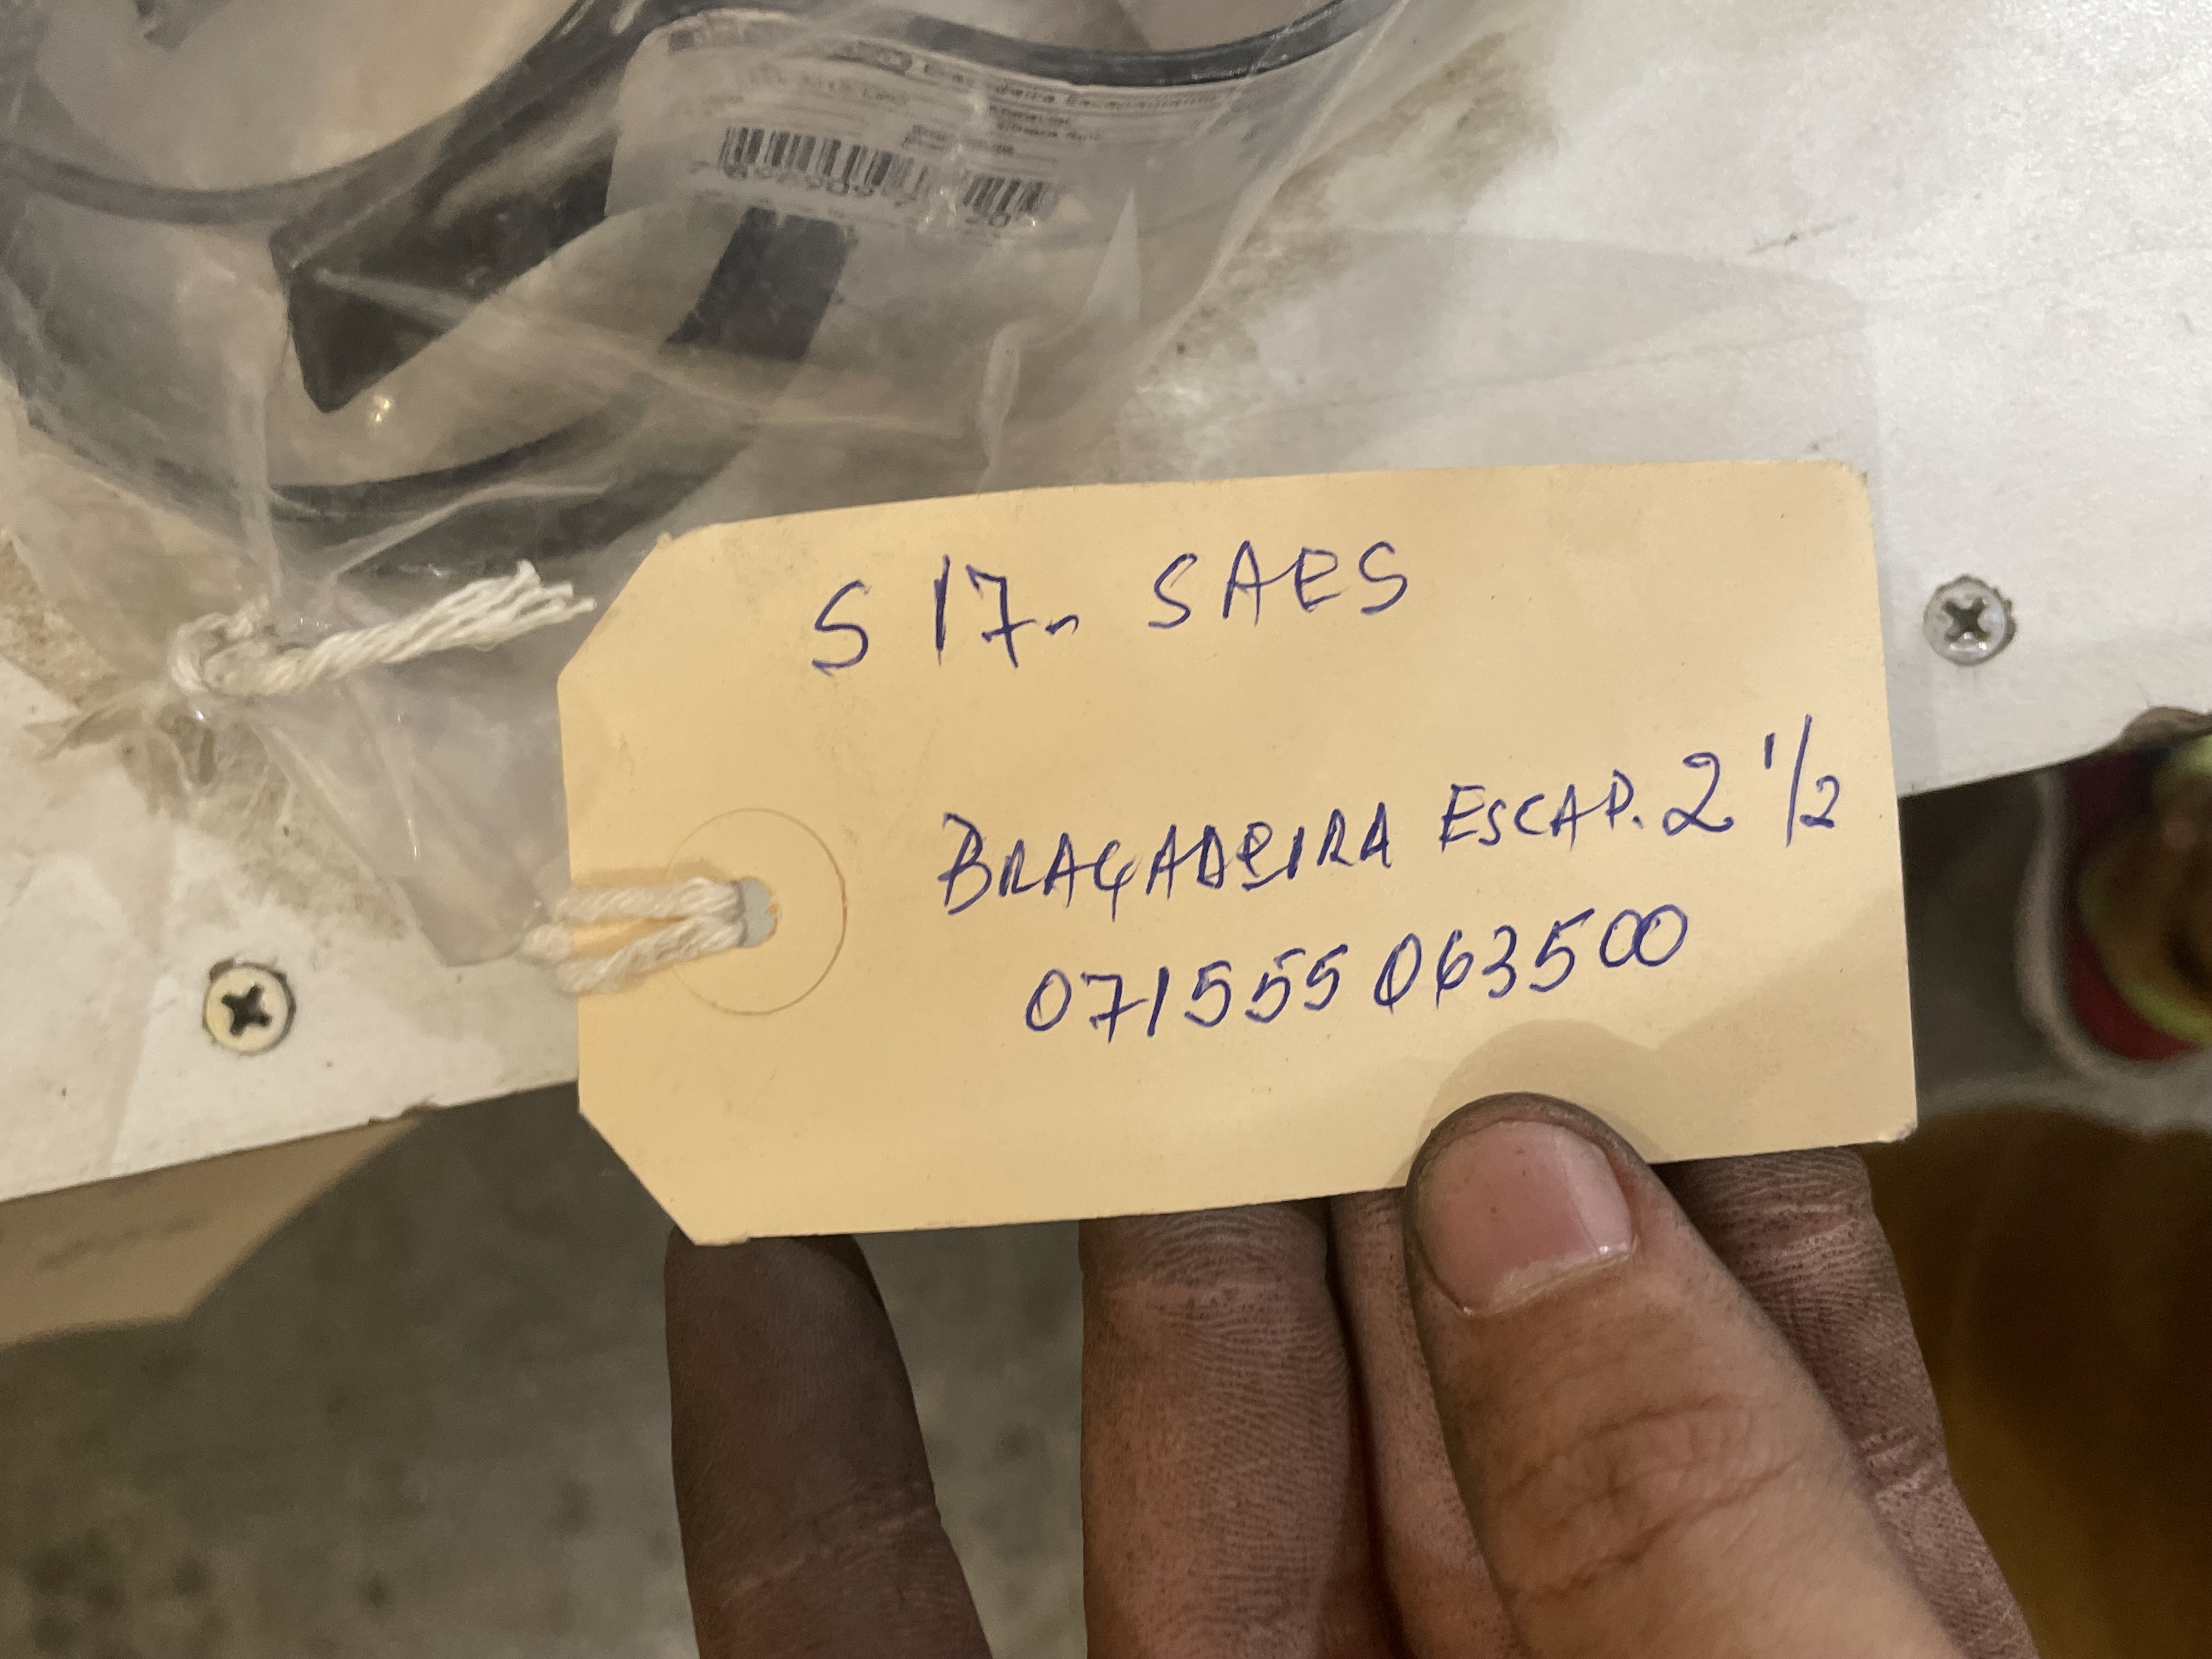 S 17" SAES
BRAÇADEIRA ESCAP. 2 1/2
071555063500